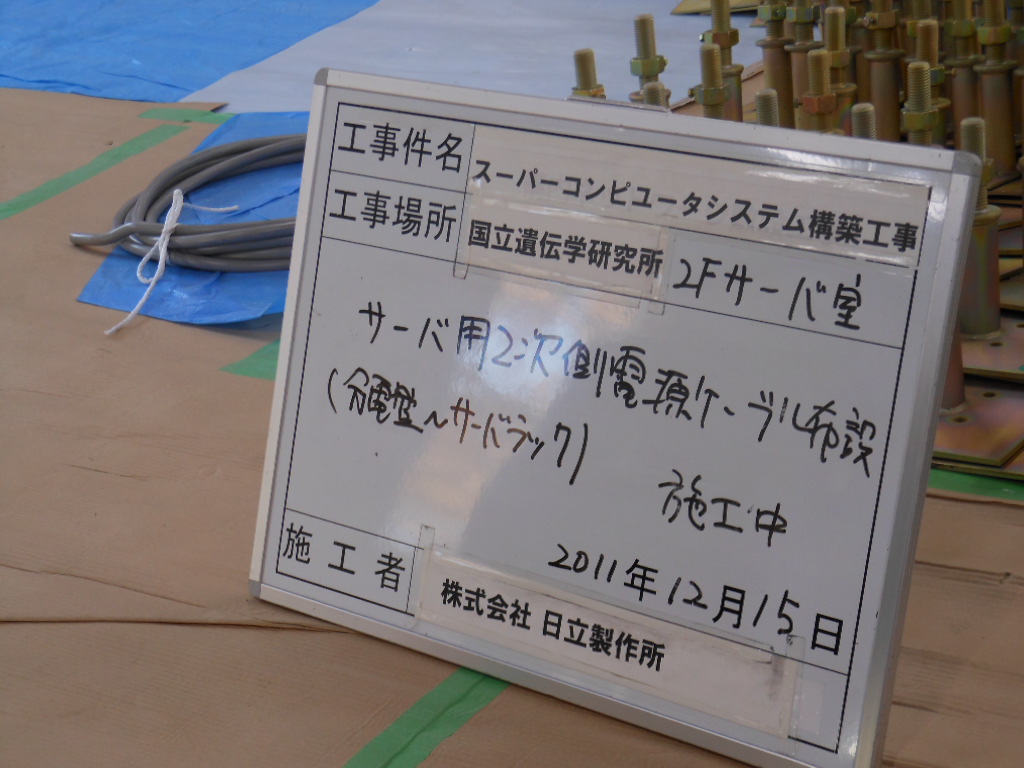 工事件名 スーパーコンピュータシステム構築工事
工事場所 国立遺伝学研究所 2Fサーバ室
サーバ用2次側電源ケーブル布設
(分電盤〜サーバラック)
施工中
2011年12月15日
施工者 株式会社 日立製作所